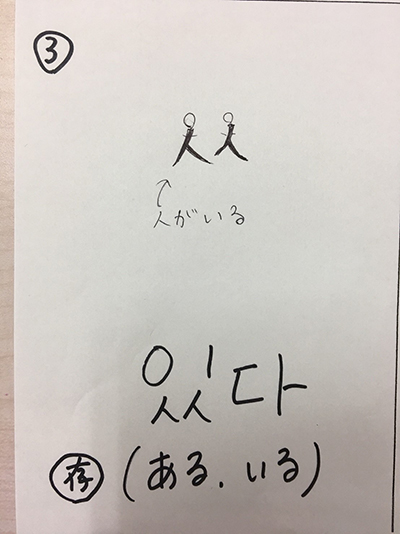 ③
人人
人がいる
있다
存 (ある、いる)